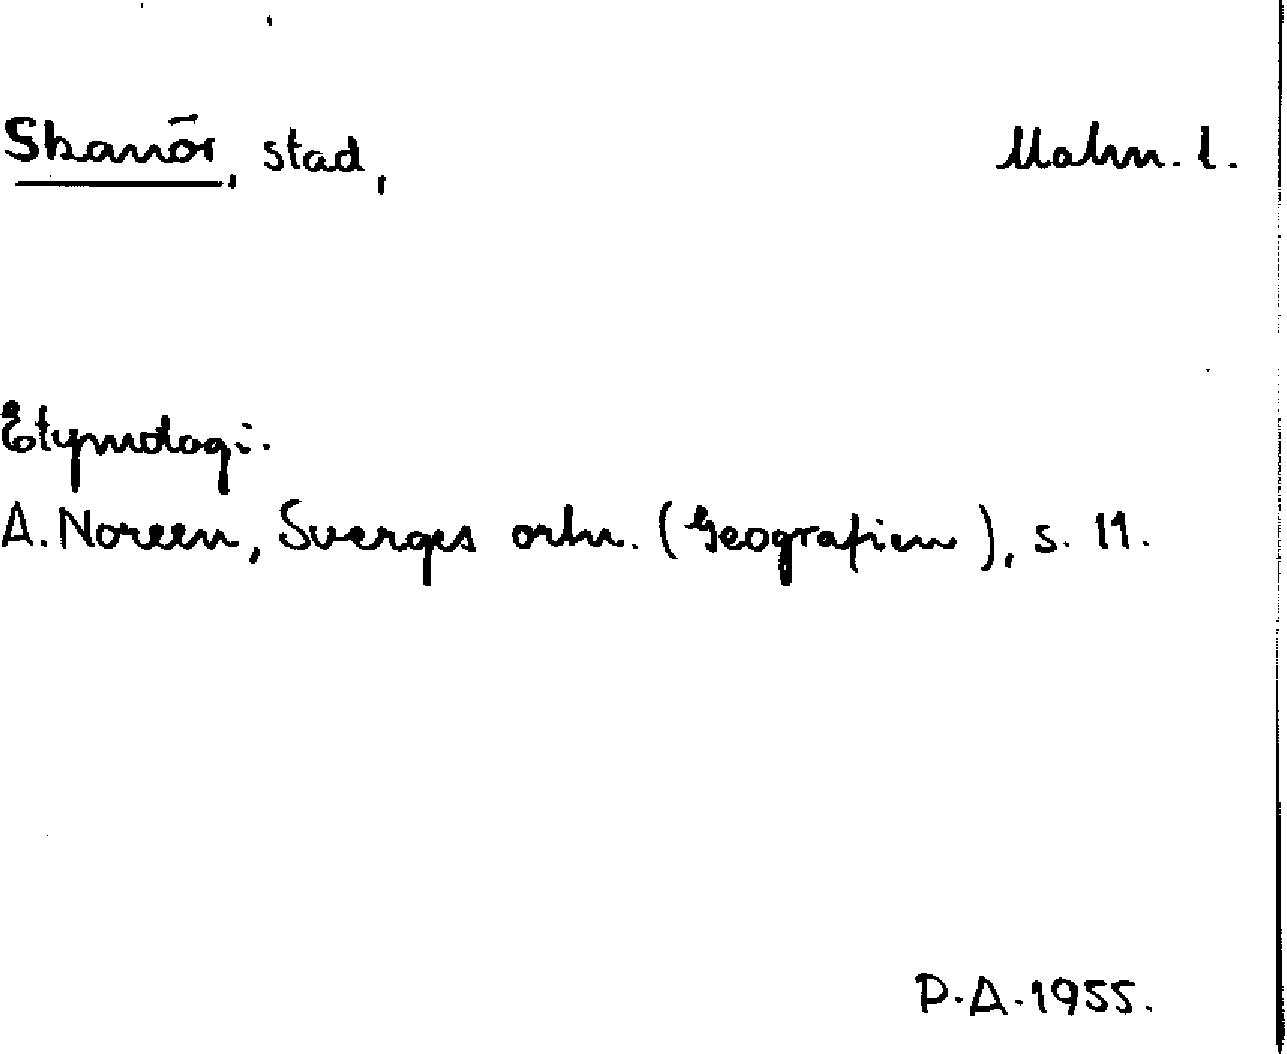 Skanör, stad, Malm. l.
Etymologi.
A. Noreen, Sverges ortn. (Geografien), s. 11.
P. A. 1955.